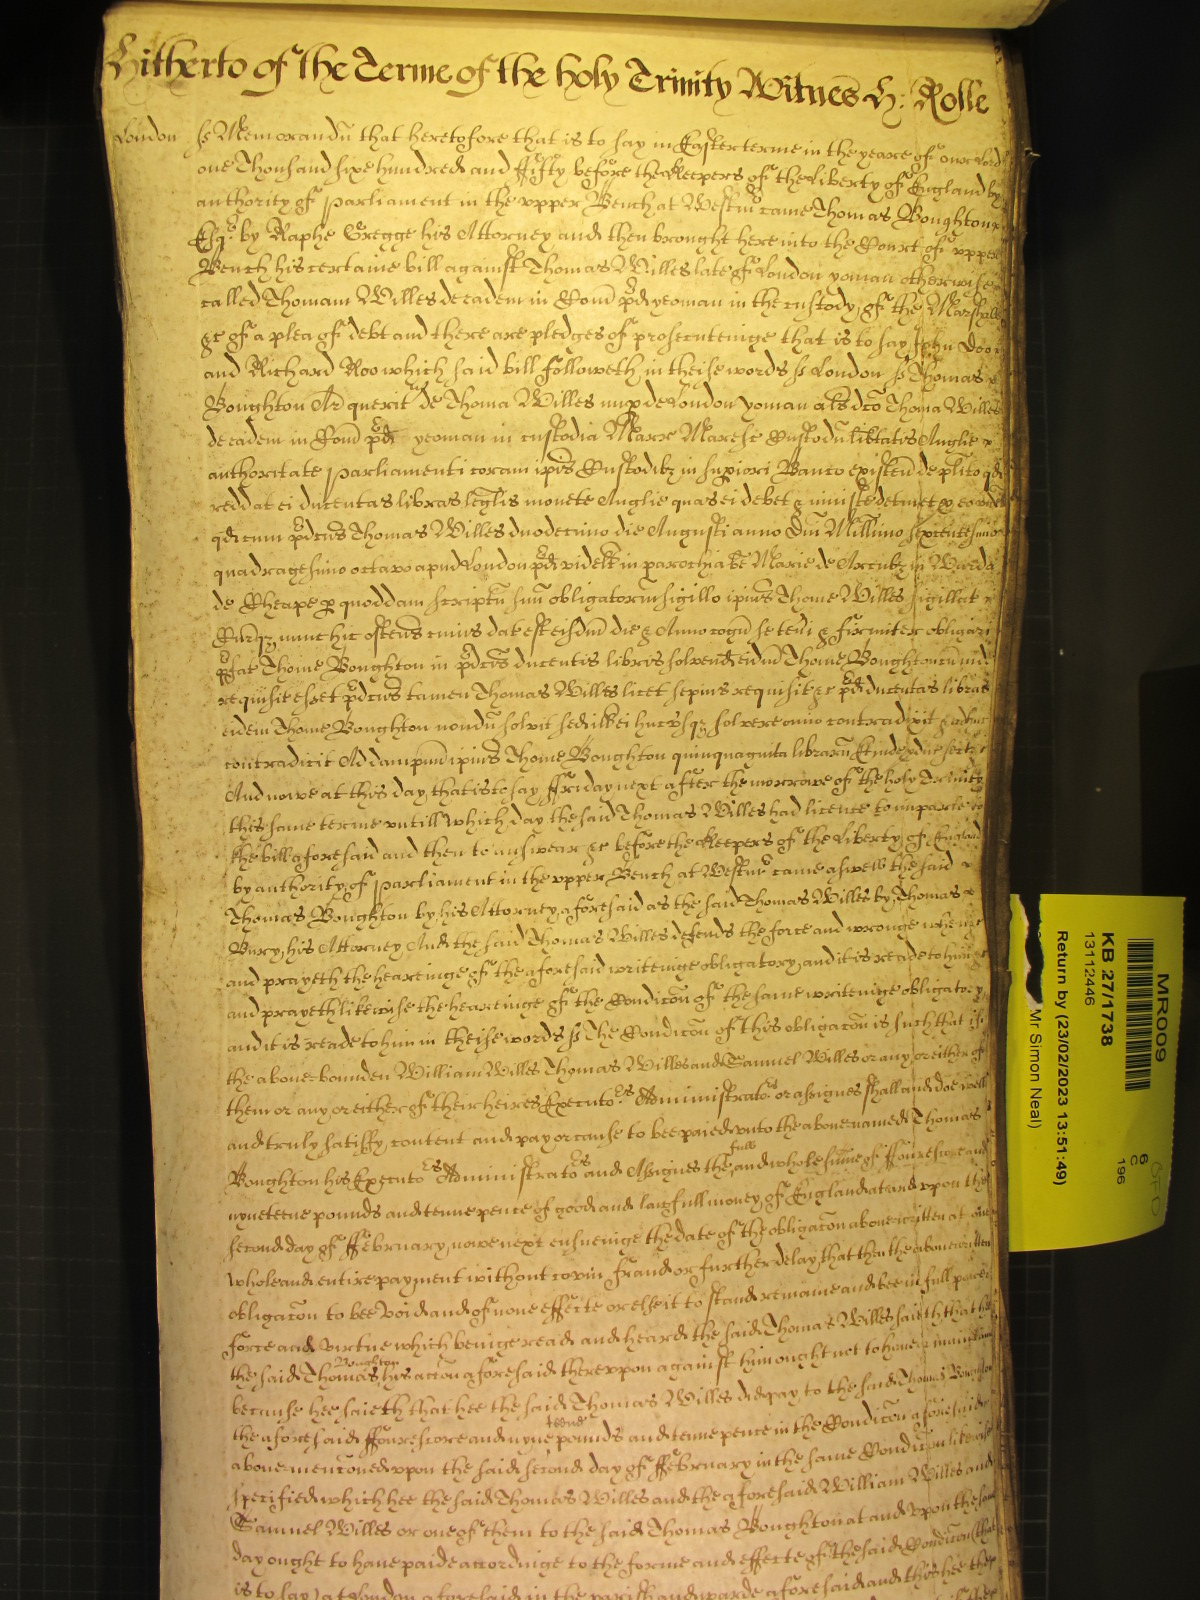 Hitherto of the Terme of the holy Trinity Witnes H: Rolle
London ss Memorandũ that heretofore that is to say in Easter terme in the yeare of our Lord
one Thousand sixe hundred and ffifty before the Keepers of the Liberty of England by
authority of Parliament in the vpper Bench at Westmr came Thomas Boughton
Esqr by Raphe Gregge his Attorney and then brought here into the Court of vpper
Bench his certaine bill against Thomas Willes late of London yoman otherwise
called Thomam Willes de eadem in Com̃ p̃d yeoman in the custody of the Marshall
&c of a plea of debt and there are pledges of prosecuteinge that is to say John Doo
and Richard Roo which said bill followeth in theise words ss London ss Thomas
Boughton Ar̃ querit de Thoma Willes nup de London yoman als dc̃o Thoma Willes
de eadem in Com̃ p̃d yeoman in custodia Marr Maresc Custodũ lib̃tatis Anglie
authoritate Parliamenti coram ip̃is Custodibz in supiori Banco existen̄ de pl̃ito qd
reddat ei ducentas libras leg̃lis monete Anglie quas ei debet & iniuste detinet
qd cum p̃dcũs Thomas Willes duodecimo die Augusti anno Dñi Mill̃imo sexcentesimo
quadragesimo octavo apud London p̃d videlt in parochia b̃e Marie de Arcubz in Warda
de Cheape p quoddam scriptũ suũ obligatoriũ sigillo ip̃ius Thome Willes sigillat
Curqz nunc hic ostens cuius dat est eisdm̃ die & Anno cogñ se teñi & firmiter obligari
p̃fat Thome Boughton in p̃dcĩs ducentis libris solvend eidm̃ Thome Boughton cũ inde
requisit esset p̃dcũs tamen Thomas Willes licet sepius requisit &c p̃d ducentas libras
eidem Thome Boughton nondũ solvit sed ill ei hucvsqz solvere om̃ino contradixit & adhuc
contradicit Ad dampnũ ip̃ius Thome Boughton quinquaginta librarũ Et inde
And nowe at this day that is to say ffriday next after the morrowe of the holy Trinity
this same terme vntill which day the said Thomas Willes had licence to imparle to
the bill aforesaid and then to answear &c before the Keepers of the Liberty of England
by authority of Parliament in the vpper Bench at Westmr came aswell the said
Thomas Boughton by his Attorney aforesaid as the said Thomas Willes by Thomas
Burcy his Attorney And the said Thomas Willes defends the force and wronge when &c
and prayeth the heareinge of the aforesaid writeinge obligatory and it is reade to him
and prayeth likewise the heareinge of the Condic̃on of the same writeinge obligatory
and it is reade to him in theise words ss The Condic̃on of this obligac̃on is such that if
the aboue bounden William Willes Thomas Willes and Samuel Willes or any or either of
them or any or either of their heires Executors Administrators or assignes shall and doe well
and truly satisfy content and pay or cause to bee paied vnto the aboue named Thomas
Boughton his Executors Administrators and Assignes the full and whole sum̃e of ffourescore and
nyneteene pounds and tenne pence of good and lawfull money of England at and vpon the
second day of ffebruary nowe next ensueinge the date of the obligac̃on aboue written at one
whole and entire payment without covin fraud or further delay that then the aboue written
obligac̃on to bee void and of none effecte or else it to stand remaine and bee in full power
force and virtue which beinge read and heard the said Thomas Willes saith that hee
the said Thomas Boughton his acc̃on aforesaid therevpon against him ought not to haue or maintaine
because hee saieth that hee the said Thomas Willes did pay to the said Thomas Boughton
the aforesaid ffourescore and nyneteene pounds and tenne pence in the Condic̃on aforesaid
aboue menc̃oned vpon the said second day of ffebruary in the same Condic̃on likewise
specified which hee the said Thomas Willes and the aforesaid William Willes and
Samuel Willes or one of them to the said Thomas Boughton at and vpon the same
day ought to haue paide accordinge to the forme and effecte of the said Condic̃on (that
is to say) at London aforesaid in the parish and warde aforesaid and this hee the
MR009
KB 27/1738
13112446
6
C
196
Return by (23/02/2023 13:51:49)
Mr Simon Neal)